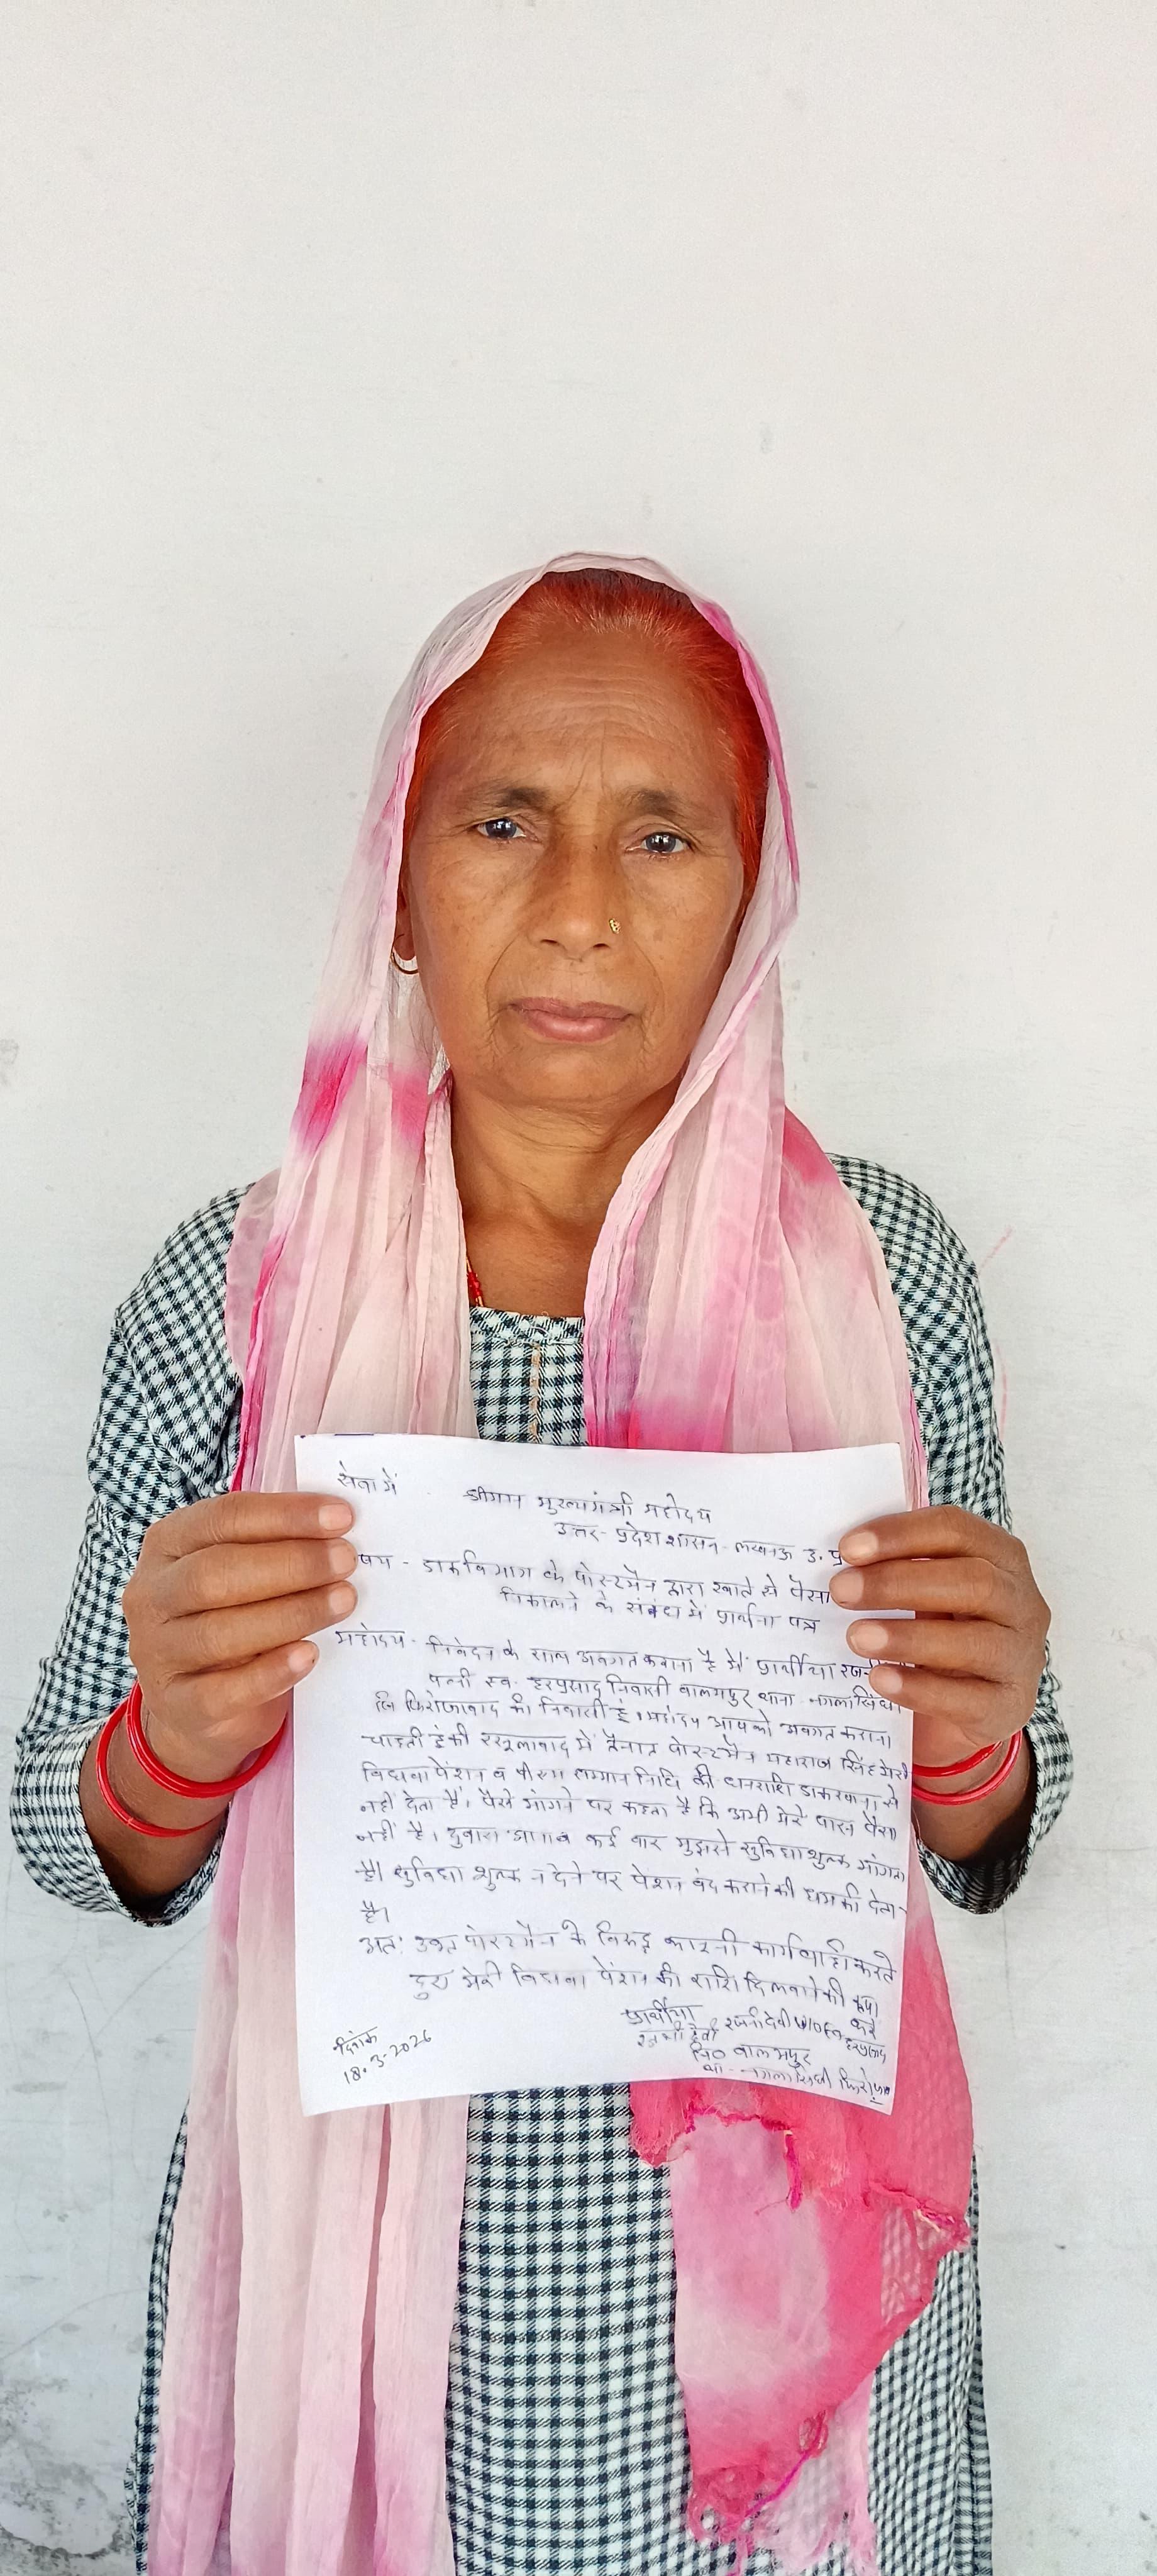 सेवा में
श्रीमान मुख्यमंत्री महोदय
उत्तर- प्रदेश शासन- लखनऊ उ. प्र
षय - डाक विभाग के पोस्टमैन द्वारा खाते से पैसा
निकालने के संबंध में प्रार्थना पत्र
महोदय - निवेदन के साथ अवगत कराना है मैं प्रार्थीया
पत्नी स्व. हरप्रसाद निवासी बालमपुर थाना- नगला सिंघी
जि फिरोजाबाद की निवासी हूं। महोदय आपको अवगत कराना
चाहती हूं की रसूलाबाद में तैनात पोस्टमैन महाराज सिंह मेरी
विधवा पेंशन व सम्मान निधि की धनराशि डाकखाना से
नहीं देता है। पैसे मांगने पर कहता है कि अभी मेरे पास पैसा
नहीं है। दुबारा कई बार मुझसे सुविधा शुल्क मांगता
है। सुविधा शुल्क न देने पर पेंशन बंद कराने की धमकी देता
है।
अतः उक्त पोस्टमैन के विरुद्ध कानूनी कार्यवाही करते
हुए मेरी विधवा पेंशन की राशि दिलवाने की कृपा
करें
प्रार्थीया
रजनी देवी रजनी देवी W/O स्व. हरप्रसाद
नि० बालमपुर
था- नगला सिंघी
दिनांक
18.3-2026